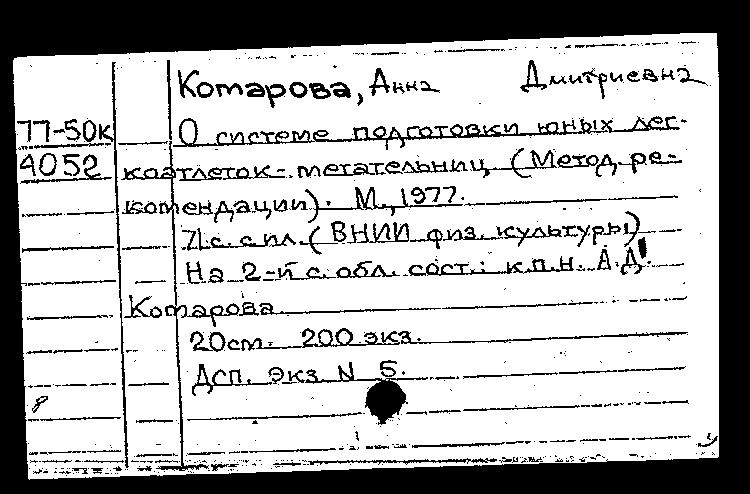 Комарова, Анна Дмитриевна
77-50к О системе подготовки юных лег-
4052 коатлеток-метательниц (Метод. ре-
комендации). М., 1977.
71 с. с ил. (ВНИИ физ. культуры)
На 2-й с. обл. сост.: к.п.н. А.Д.
Комарова
20см. 200 экз.
Дсп. Экз. N 5.
8